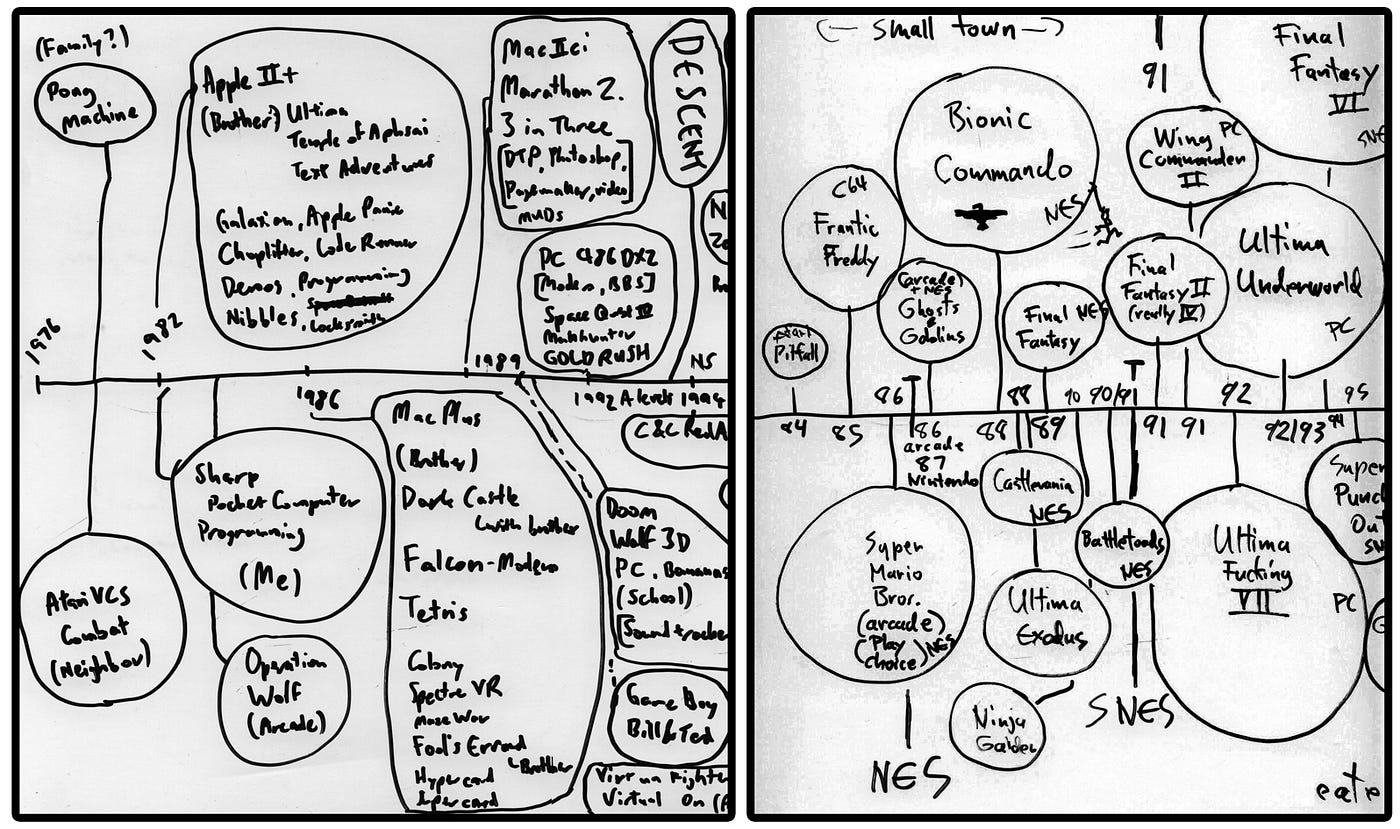 (Family?)
Pong
Machine
Apple II+
(Brother) Ultima
Temple of Aphsai
Text Adventures
Galaxian, Apple Panic
Choplifter, Lode Runner
Demos, Programming
Nibbles,
Locksmith
Mac IIci
Marathon 2.
3 in Three
[DTP, Photoshop,
Pagemaker, video]
MUDs
DESCENT
PC 486 DX2
[Modem, BBS]
Space Quest IV
Manhunter
GOLD RUSH
1976
1982
1986
1989
1992 A levels 1994
NS
Atari VCS
Combat
(Neighbor)
Sharp
Pocket Computer
Programming
(Me)
Operation
Wolf
(Arcade)
Mac Plus
(Brother)
Dark Castle
(with brother
Falcon-Modem
Tetris
Colony
Spectre VR
Maze War
Fool's Errand
Brother
Hypercard
Supercard
C&C Red A
Doom
Wolf 3D
PC, Bananas
(School)
[Soundtracker
Game Boy
Bill & Ted
Virtua Fighter
Virtual On (A
(— small town —)
91
Final
Fantasy
VI
SNE
Bionic
Commando
NES
Wing PC
Commander
II
C64
Frantic
Freddy
(arcade)
+ NES
Ghosts
&
Goblins
Final NES
Fantasy
Final
Fantasy II
(really IV)
Ultima
Underworld
PC
Atari
Pitfall
86
88
90
90/91
92
95
84
85
86
arcade
87
Nintendo
88
89
91
91
92/93
94
Super
Mario
Bros.
(arcade)
(Play
Choice) NES
NES
Castlevania
NES
Ultima
Exodus
Ninja
Gaiden
Battletoads
NES
SNES
Ultima
Fucking
VII
PC
Super
Punch
Out
eate